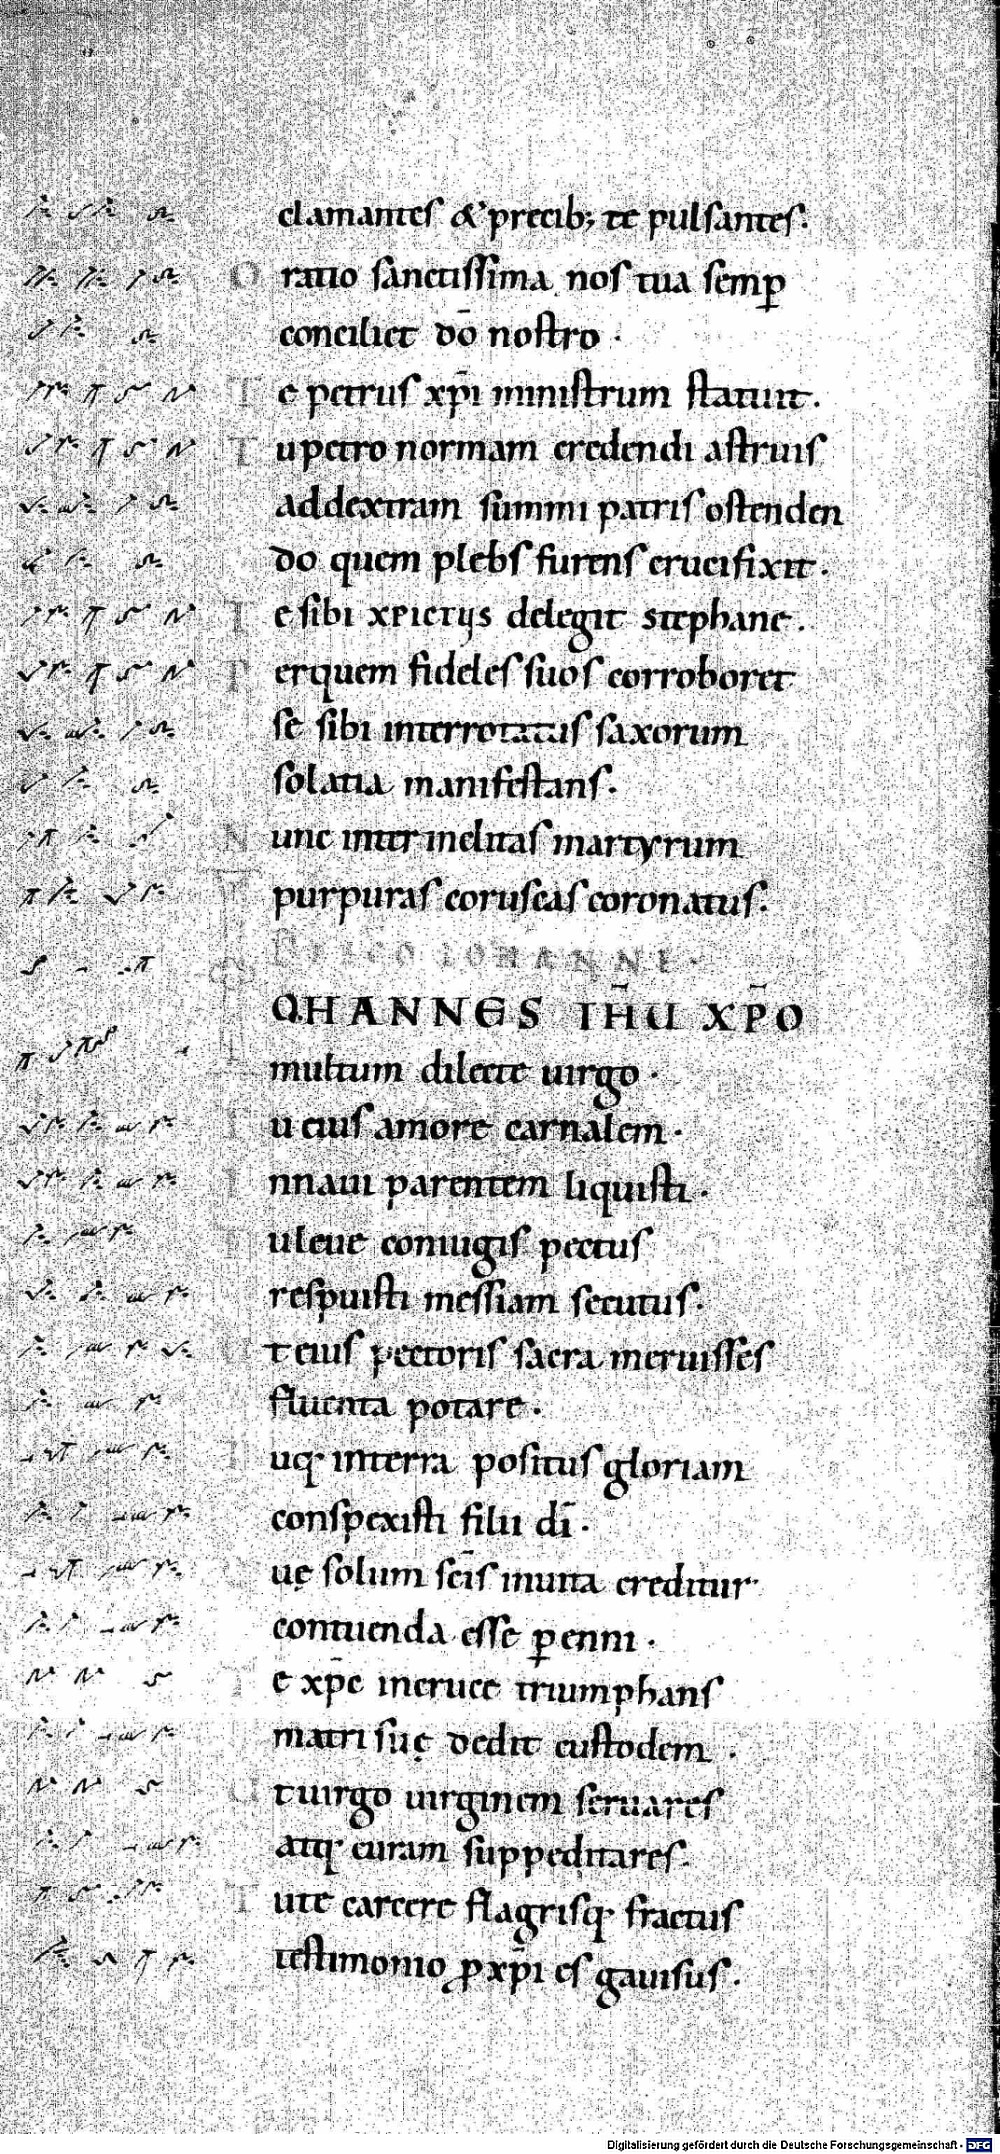 clamantes & precib; te pulsantes.
O ratio sanctissima nos tua semp̲
conciliet dō nostro ·
T e petrus xp̄i ministrum statuit.
T u petro normam credendi astruis
addextram summi patris ostenden
do quem plebs furens crucifixit.
T e sibi xpictus delegit stephane.
P erquem fideles suos corroboret
se sibi interrotatus saxorum
solatia manifestans.
N unc inter inclitas martyrum
purpuras coruscas coronatus.
IOHANNI·
IOHANNES IHŪ XP̄O
multum dilecte uirgo ·
T u eius amore carnalem ·
I nnaui parentem liquisti ·
T u leue coniugis pectus
respuisti messiam secutus.
U t eius pectoris sacra meruisses
fluenta potare ·
T uq; interra positus gloriam
conspexisti filii dī ·
Q uę solum scīs inuita creditur
contuenda esse p̲enni ·
T e xp̄c incruce triumphans
matri suę dedit custodem ·
U t uirgo uirginem seruares
atq; curam suppeditares.
T ute carcere flagrisq; fractus
testimonio ꝓ xp̄i es gauisus.
Digitalisierung gefördert durch die Deutsche Forschungsgemeinschaft - DFG